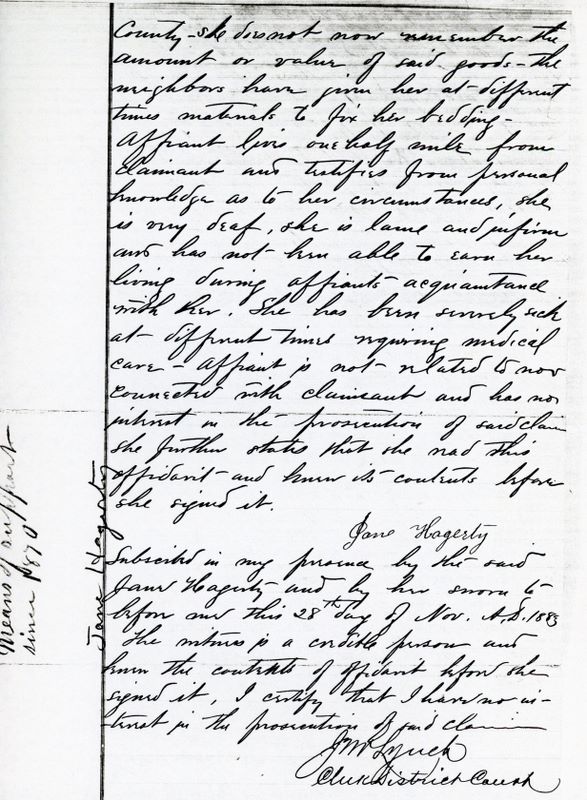 County - she does not now remember the
amount or value of said goods - the
neighbors have given her at different
times materials to fix her bedding -
Affiant lives one half mile from
claimant and testifies from personal
knowledge as to her circumstances, she
is very deaf, she is lame and infirm
and has not been able to earn her
living during affiants acquaintance
with her. She has been severely sick
at different times requiring medical
care - Affiant is not related to nor
connected with claimant and has no
interest in the prosecution of said claim
she further states that she read this
affidavit and knew its contents before
she signed it.
Jane Hagerty
Subscribed in my presence by the said
Jane Hagerty and by her sworn to
before me this 28th day of Nov. A.D. 1883
The witness is a credible person and
knew the contents of affidavit before she
signed it, I certify that I have no in-
-terest in the prosecution of said claim
J W Lynch
Clerk District Court
Means of support
since 1870
Jane Hagerty